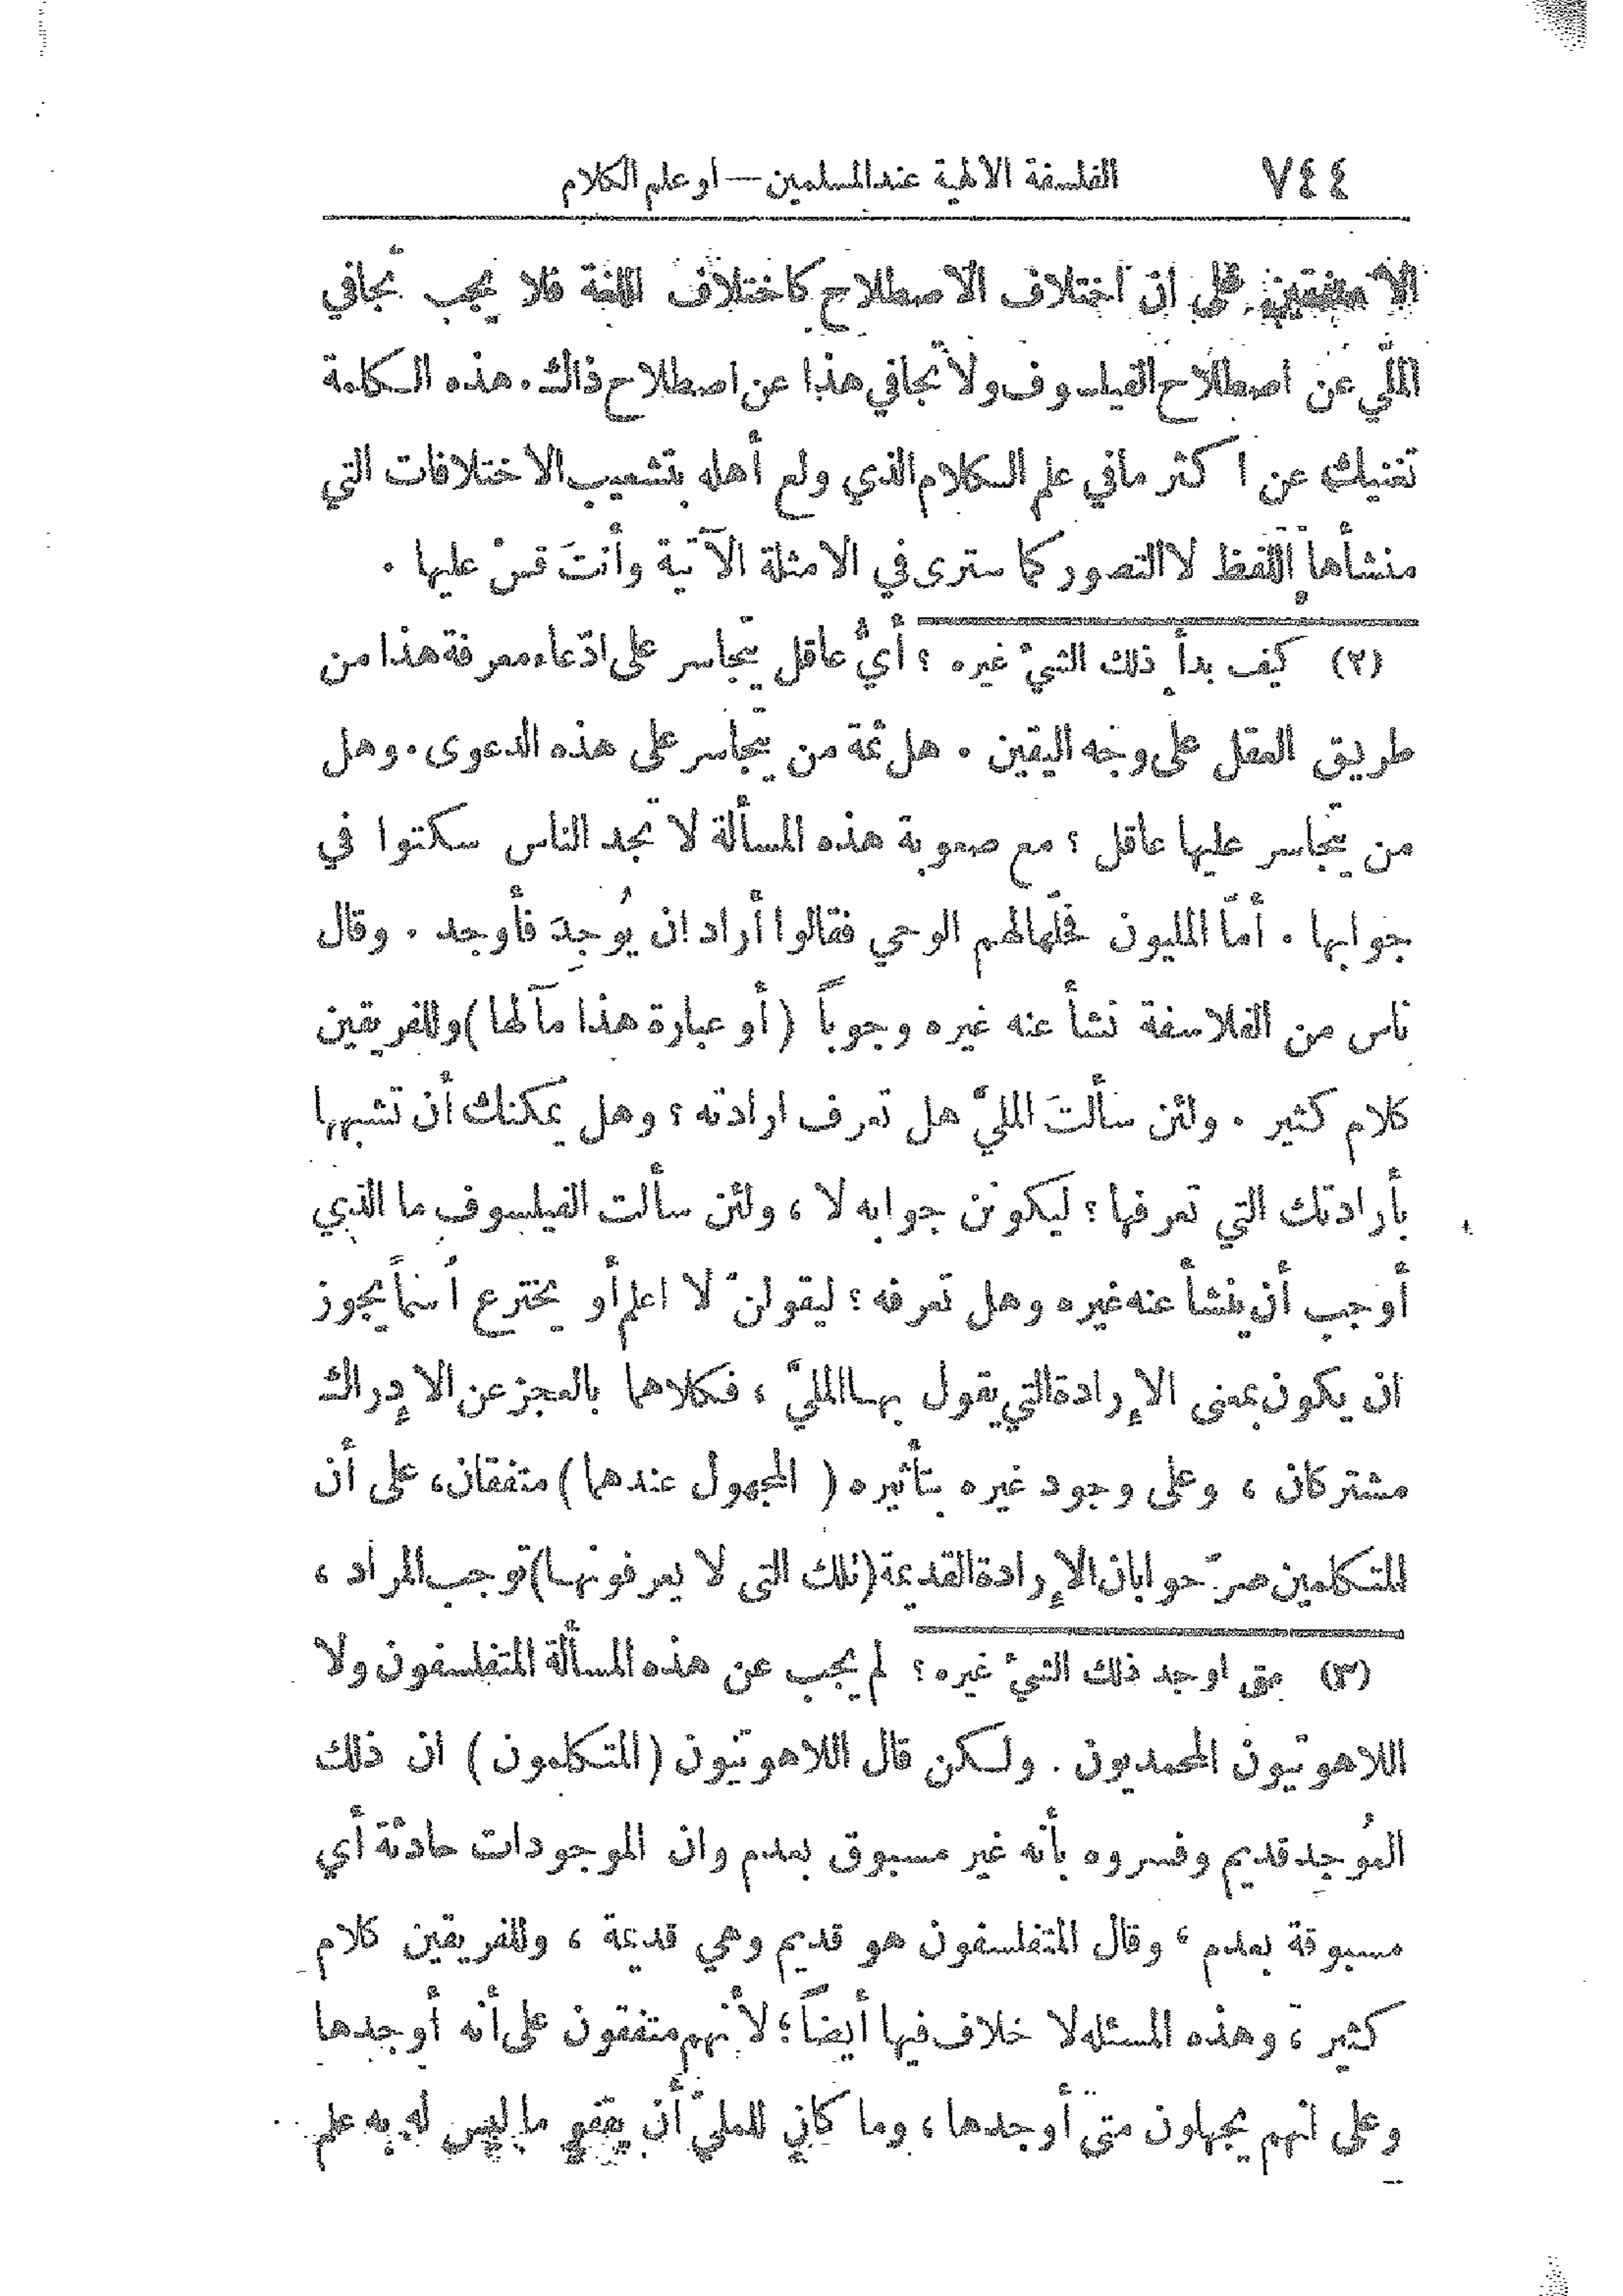 ٧٤٤ الفلسفة الالهية عند المسلمين — او علم الكلام
الا متفقين على ان اختلاف الاصطلاح كاختلاف اللغة فلا يجب تجافي
الملّي عن اصطلاح الفيلسوف ولا تجافي هذا عن اصطلاح ذاك. هذه الكلمة
تغنيك عن اكثر مافي علم الكلام الذي ولع أهله بتشعيب الاختلافات التي
منشأها اللفظ لا التصور كما سترى في الامثلة الآتية وأنتَ قسْ عليها .
(٢) كيف بدأ ذلك الشيءُ غيره ؟ أيُّ عاقل يتجاسر على ادّعاء معرفة هذا من
طريق العقل على وجه اليقين . هل ثمة من يتجاسر على هذه الدعوى. وهل
من يتجاسر عليها عاقل ؟ مع صعوبة هذه المسألة لا تجد الناس سكتوا في
جوابها . أمّا المليون فحلّها لهم الوحي فقالوا أراد ان يُوجِدَ فأوجد . وقال
ناس من الفلاسفة نشأ عنه غيره وجوباً (أو عبارة هذا مآلها) وللفريقين
كلام كثير . ولئن سألتَ المليَّ هل تعرف ارادته ؟ وهل يمكنك أن تشبهها
بأرادتك التي تعرفها ؟ ليكونن جوابه لا ، ولئن سألت الفيلسوف ما الذي
أوجب أن ينشأ عنه غيره وهل تعرفه ؟ ليقولنّ لا اعلم أو يخترع اسماً يجوز
ان يكون بمعنى الإرادة التي يقول بها المليّ ، فكلاهما بالعجز عن الإدراك
مشتركان ، وعلى وجود غيره بتأثيره ( المجهول عندهما ) متفقان، على أن
المتكلمين صرّحوا بان الإرادة القديمة (تلك التي لا يعرفونها) توجب المراد ،
(٣) متى اوجد ذلك الشيءُ غيره ؟ لم يجب عن هذه المسألة المتفلسفون ولا
اللاهوتيون المحمديون . ولكن قال اللاهوتيون (المتكلمون) ان ذلك
المُوجِد قديم وفسروه بأنه غير مسبوق بعدم وان الموجودات حادثة أي
مسبوقة بعدم ، وقال المتفلسفون هو قديم وهي قديمة ، وللفريقين كلام
كثير ، وهذه المسئله لا خلاف فيها أيضاً ؛ لأنهم متفقون على أنه أوجدها
وعلى انهم يجهلون متى أوجدها ، وما كان للمليّ أن يقفو ما ليس له به علم